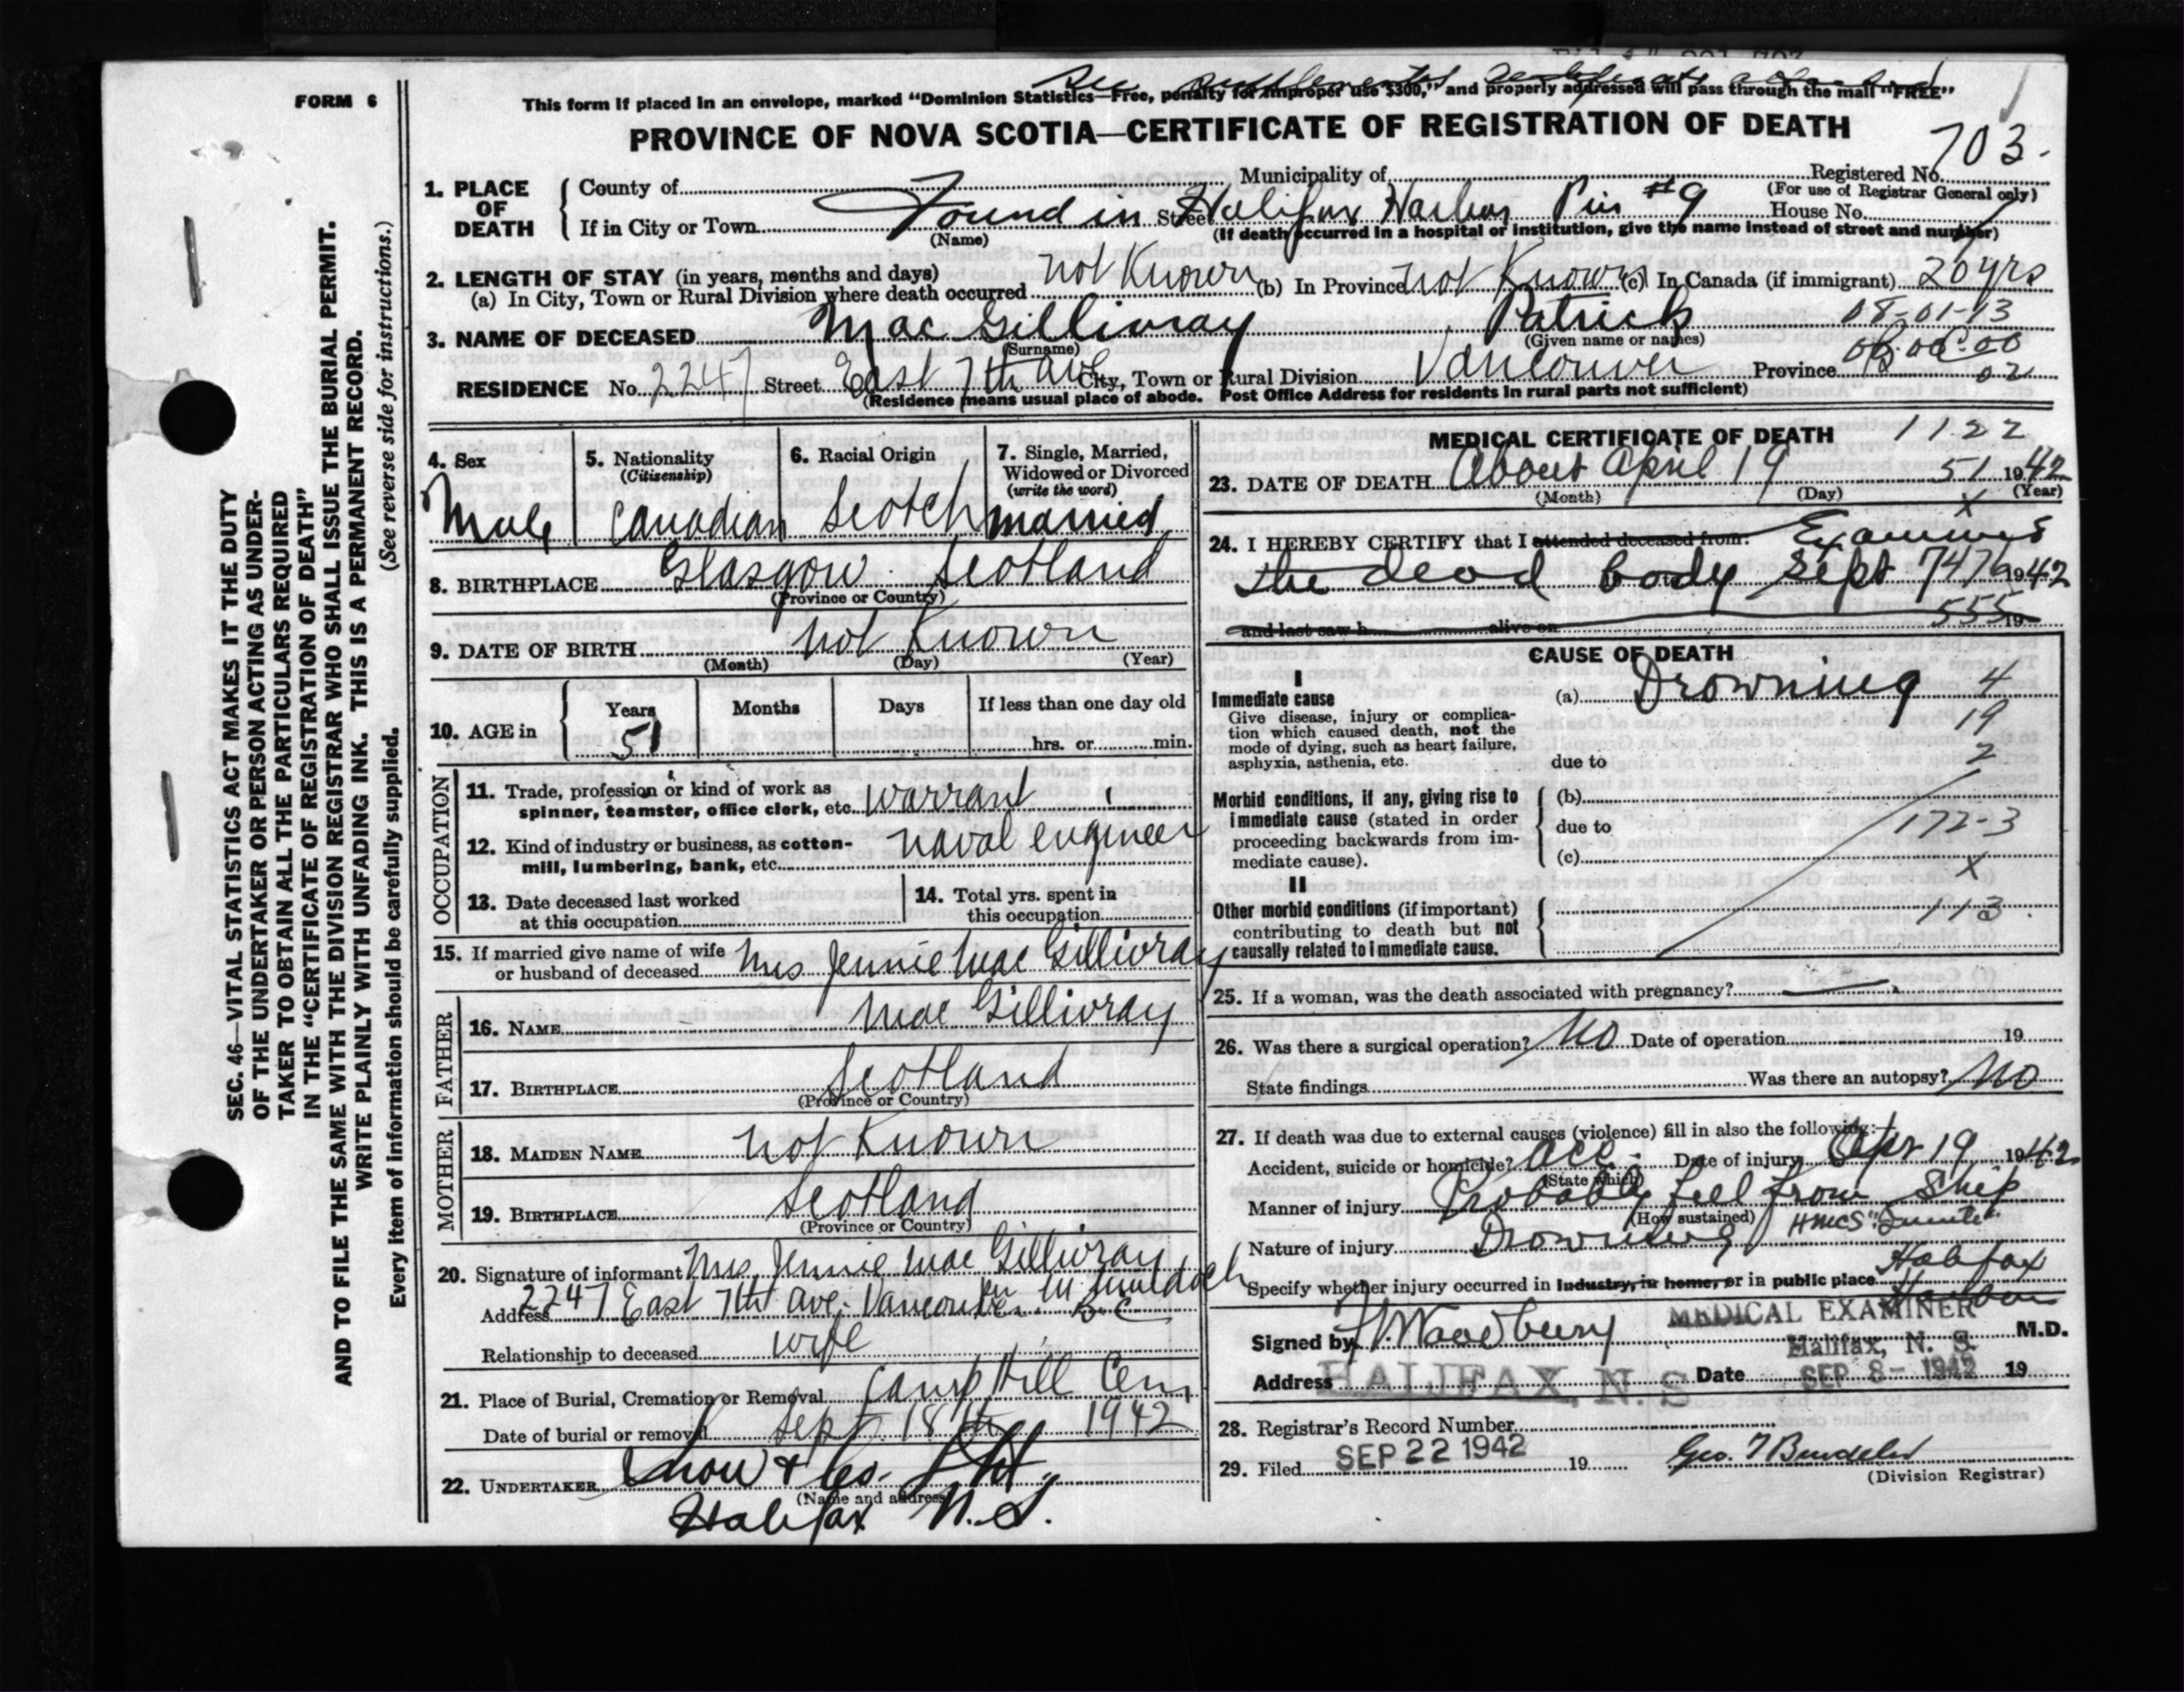 FORM 6
See supplementary certificate attached
This form if placed in an envelope, marked "Dominion Statistics—Free, penalty for improper use $300," and properly addressed will pass through the mail "FREE"
PROVINCE OF NOVA SCOTIA—CERTIFICATE OF REGISTRATION OF DEATH
703.
1. PLACE OF DEATH
County of Municipality of Registered No.
(For use of Registrar General only)
If in City or Town Found in Street Halifax Harbor Pier #9 House No.
(Name) (If death occurred in a hospital or institution, give the name instead of street and number)
2. LENGTH OF STAY (in years, months and days)
(a) In City, Town or Rural Division where death occurred not Known (b) In Province not Known (c) In Canada (if immigrant) 20 yrs
08-01-13
3. NAME OF DECEASED Mac Gillivray Patrick
(Surname) (Given name or names)
00.00.00
RESIDENCE No. 2247 Street East 7th ave City, Town or Rural Division Vancouver Province B.C. 02
(Residence means usual place of abode. Post Office Address for residents in rural parts not sufficient)
4. Sex
Male
5. Nationality
(Citizenship)
Canadian
6. Racial Origin
Scotch
7. Single, Married, Widowed or Divorced
(write the word)
married
8. BIRTHPLACE Glasgow Scotland
(Province or Country)
9. DATE OF BIRTH not Known
(Month) (Day) (Year)
10. AGE in
Years Months Days If less than one day old
51 hrs. or min.
OCCUPATION
11. Trade, profession or kind of work as
spinner, teamster, office clerk, etc. Warrant
12. Kind of industry or business, as cotton-
mill, lumbering, bank, etc. naval engineer
13. Date deceased last worked
at this occupation
14. Total yrs. spent in
this occupation
15. If married give name of wife
or husband of deceased Mrs Jennie Mac Gillivray
FATHER
16. NAME Mac Gillivray
17. BIRTHPLACE Scotland
(Province or Country)
MOTHER
18. MAIDEN NAME not Known
19. BIRTHPLACE Scotland
(Province or Country)
20. Signature of informant Mrs Jennie Mac Gillivray
Address 2247 East 7th ave. Vancouver B C
Relationship to deceased wife
21. Place of Burial, Cremation or Removal Camp Hill Cem
Date of burial or removal Sept 18th 1942
22. UNDERTAKER Snow & Co. Ltd.
(Name and address)
Halifax N.S.
MEDICAL CERTIFICATE OF DEATH 1122
23. DATE OF DEATH About April 19 51 1942
(Month) (Day) (Year)
x
24. I HEREBY CERTIFY that I attended deceased from: Examined
the dead body Sept 7 1942
and last saw h alive on 555 19
CAUSE OF DEATH
I
Immediate cause
Give disease, injury or complica-
tion which caused death, not the
mode of dying, such as heart failure,
asphyxia, asthenia, etc.
(a) Drowning 4
19
due to 2
Morbid conditions, if any, giving rise to
immediate cause (stated in order
proceeding backwards from im-
mediate cause).
(b)
due to 172-3
(c) x
II
Other morbid conditions (if important)
contributing to death but not
causally related to immediate cause.
113
25. If a woman, was the death associated with pregnancy? —
26. Was there a surgical operation? No Date of operation 19
State findings Was there an autopsy? No
27. If death was due to external causes (violence) fill in also the following:—
Accident, suicide or homicide? Acc. Date of injury Apr 19 1942
(State which)
Manner of injury Probably fell from Ship
(How sustained)
Nature of injury Drowning HMCS
Specify whether injury occurred in industry, in home, or in public place Halifax Harbour
Signed by Woodbury MEDICAL EXAMINER M.D.
Halifax, N. S.
Address HALIFAX, N. S Date SEP 8 - 1942 19
28. Registrar's Record Number
29. Filed SEP 22 1942 19 Geo. T
(Division Registrar)
SEC. 46—VITAL STATISTICS ACT MAKES IT THE DUTY
OF THE UNDERTAKER OR PERSON ACTING AS UNDER-
TAKER TO OBTAIN ALL THE PARTICULARS REQUIRED
IN THE "CERTIFICATE OF REGISTRATION OF DEATH"
AND TO FILE THE SAME WITH THE DIVISION REGISTRAR WHO SHALL ISSUE THE BURIAL PERMIT.
WRITE PLAINLY WITH UNFADING INK. THIS IS A PERMANENT RECORD.
(See reverse side for instructions.)
Every item of information should be carefully supplied.